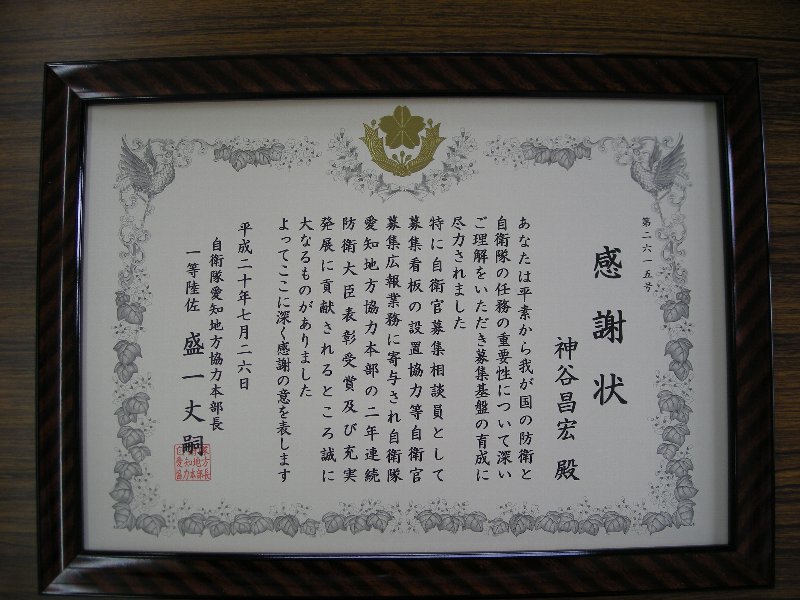 第二六一五号
感謝状
神谷昌宏 殿
あなたは平素から我が国の防衛と
自衛隊の任務の重要性について深い
ご理解をいただき募集基盤の育成に
尽力されました
特に自衛官募集相談員として
募集看板の設置協力等自衛官
募集広報業務に寄与され自衛隊
愛知地方協力本部の二年連続
防衛大臣表彰受賞及び充実
発展に貢献されるところ誠に
大なるものがありました
よってここに深く感謝の意を表します
平成二十年七月二六日
自衛隊愛知地方協力本部長
一等陸佐 盛一丈嗣
自衛隊
愛知地方
協力本部長